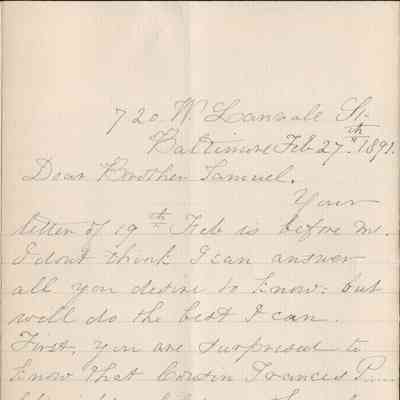 720 W. Lanvale St.
Baltimore Feb 27th 1891.
Dear Brother Samuel.
Your
letter of 19th Feb is before me.
I dont think I can answer
all you desire to know: but
will do the best I can.
First, you are surprised to
know that Cousin Frances P....